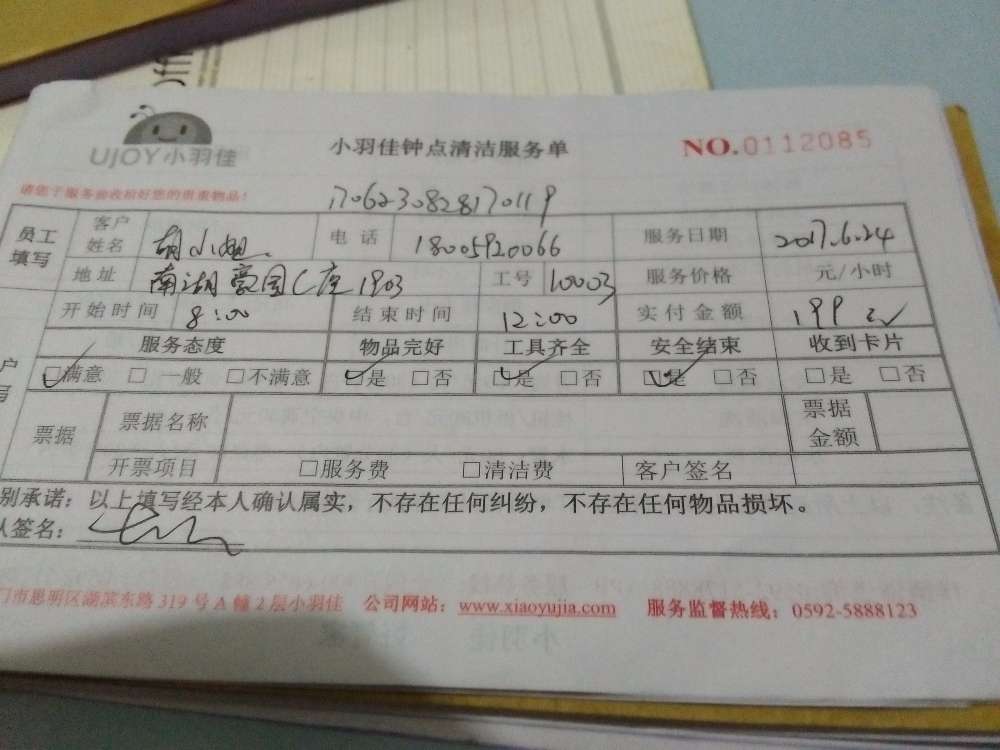 UJOY小羽佳
小羽佳钟点清洁服务单
NO.0112085
请您于服务前收拾好您的贵重物品!
1706230828170119
员工填写 客户姓名 胡小姐 电话 18005920066 服务日期 2017.6.24
地址 南湖豪园C座1903 工号 10003 服务价格 元/小时
开始时间 8:00 结束时间 12:00 实付金额 199元
服务态度 物品完好 工具齐全 安全结束 收到卡片
☑满意 □一般 □不满意 ☑是 □否 ☑是 □否 ☑是 □否 □是 □否
票据 票据名称 票据金额
开票项目 □服务费 □清洁费 客户签名
别承诺：以上填写经本人确认属实，不存在任何纠纷，不存在任何物品损坏。
签名：
门市思明区湖滨东路 319 号 A 幢 2 层小羽佳 公司网站：www.xiaoyujia.com 服务监督热线：0592-5888123